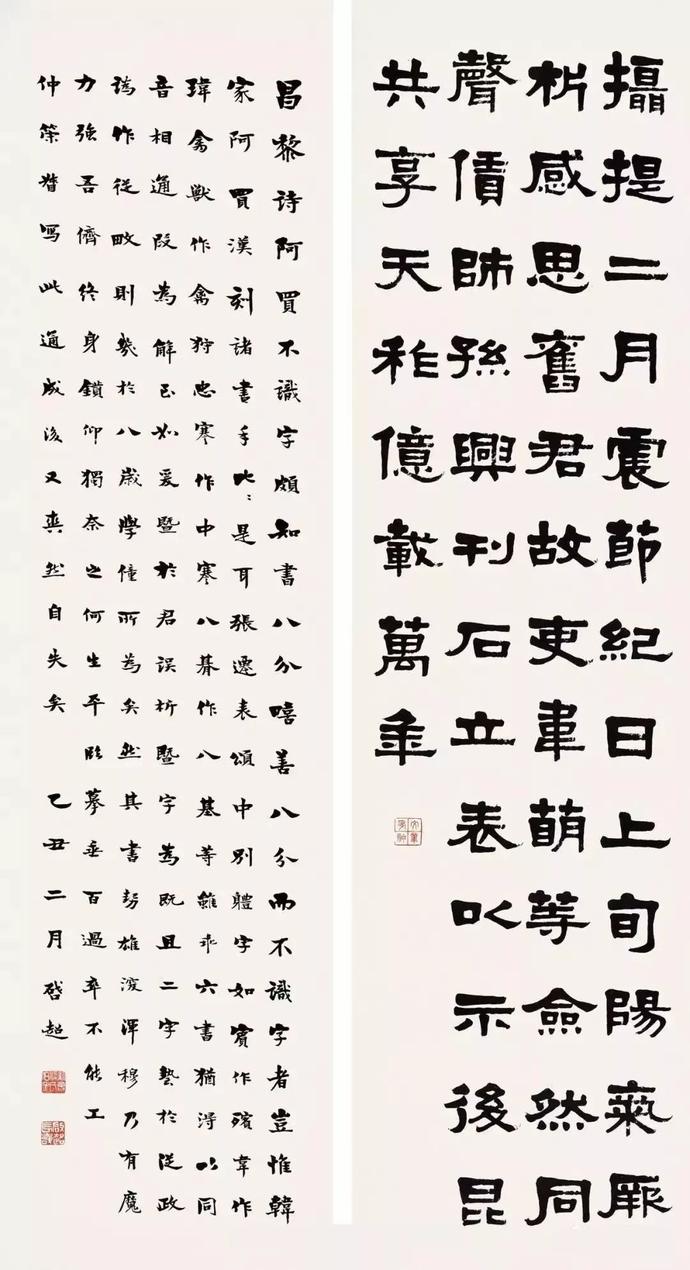 攝提二月震節紀日上旬陽氣厥
析感思舊君故吏韋萌等僉然同
聲賃師孫興刊石立表以示後昆
共享天祚億載萬年
昌黎詩阿買不識字頗知書八分嘻善八分而不識字者豈惟韓
家阿買漢刻諸書手比比是耳張遷表頌中別體字如賓作殯韋作
瑋禽獸作禽狩忠寒作中寒八朞作八基等雖乖六書猶得以同
音相通段為解已如爰暨於君誤析暨字為既且二字於從政
誤作從畋則幾於八歲學僮所為矣然其書勢雄浚渾穆乃有魔
力強吾儕終身鑽仰獨奈之何生平臨摹垂百過卒不能工
仲策督寫此通成後又爽然自失矣 乙丑二月啓超